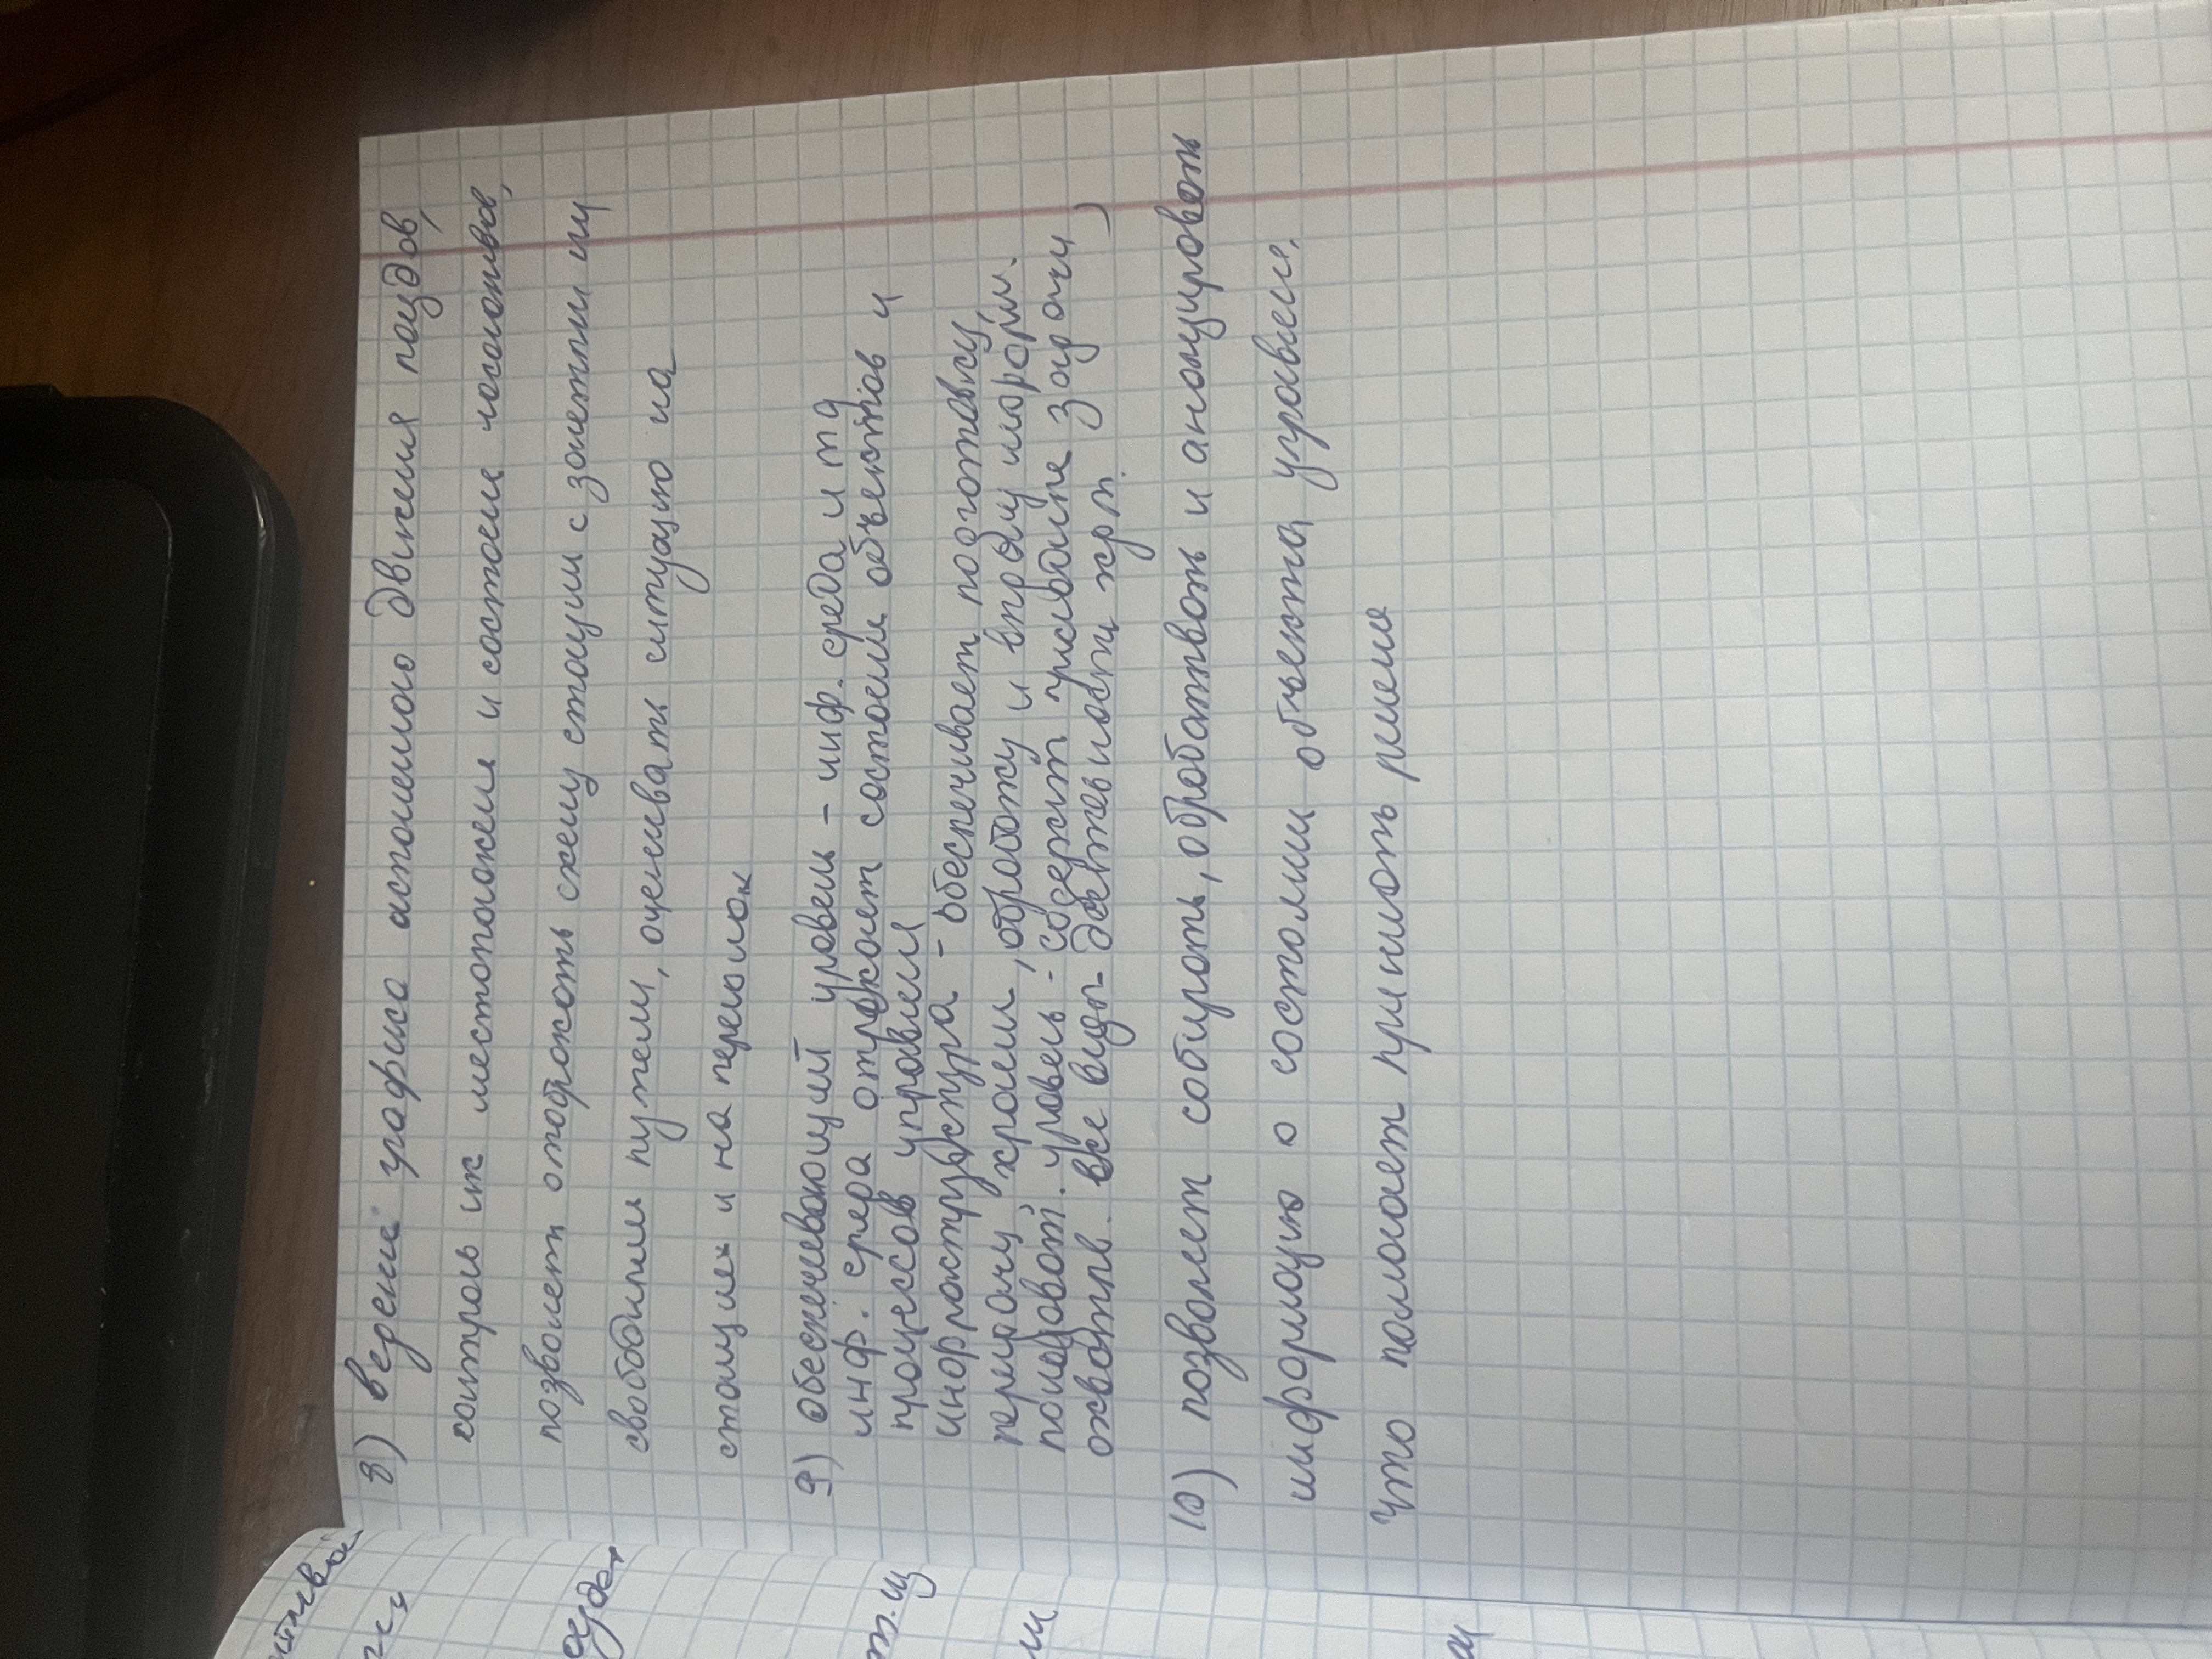 8) верени графика исполненого движения поездов,
контроль их местоположения и состоени локомотивов,
позволяет отображать схему станции с занетыми или
свободными путеми, оценивать ситуацию на
станциях и на перегонах
9) обеспечивающий уровень - инф. среда и тд
инф. среда отражает состоени объектов и
процессов управлени
инфраструктура - обеспечивает подготовку,
передачу хранени, обработку и инорм.
уровень - содержит задачи
охватыв. все виды деятеьности жрт.
10) позволяет собирать, обробатывать и анализировать
информацию о состоянии объекта управлен.
что помогает принимать решения